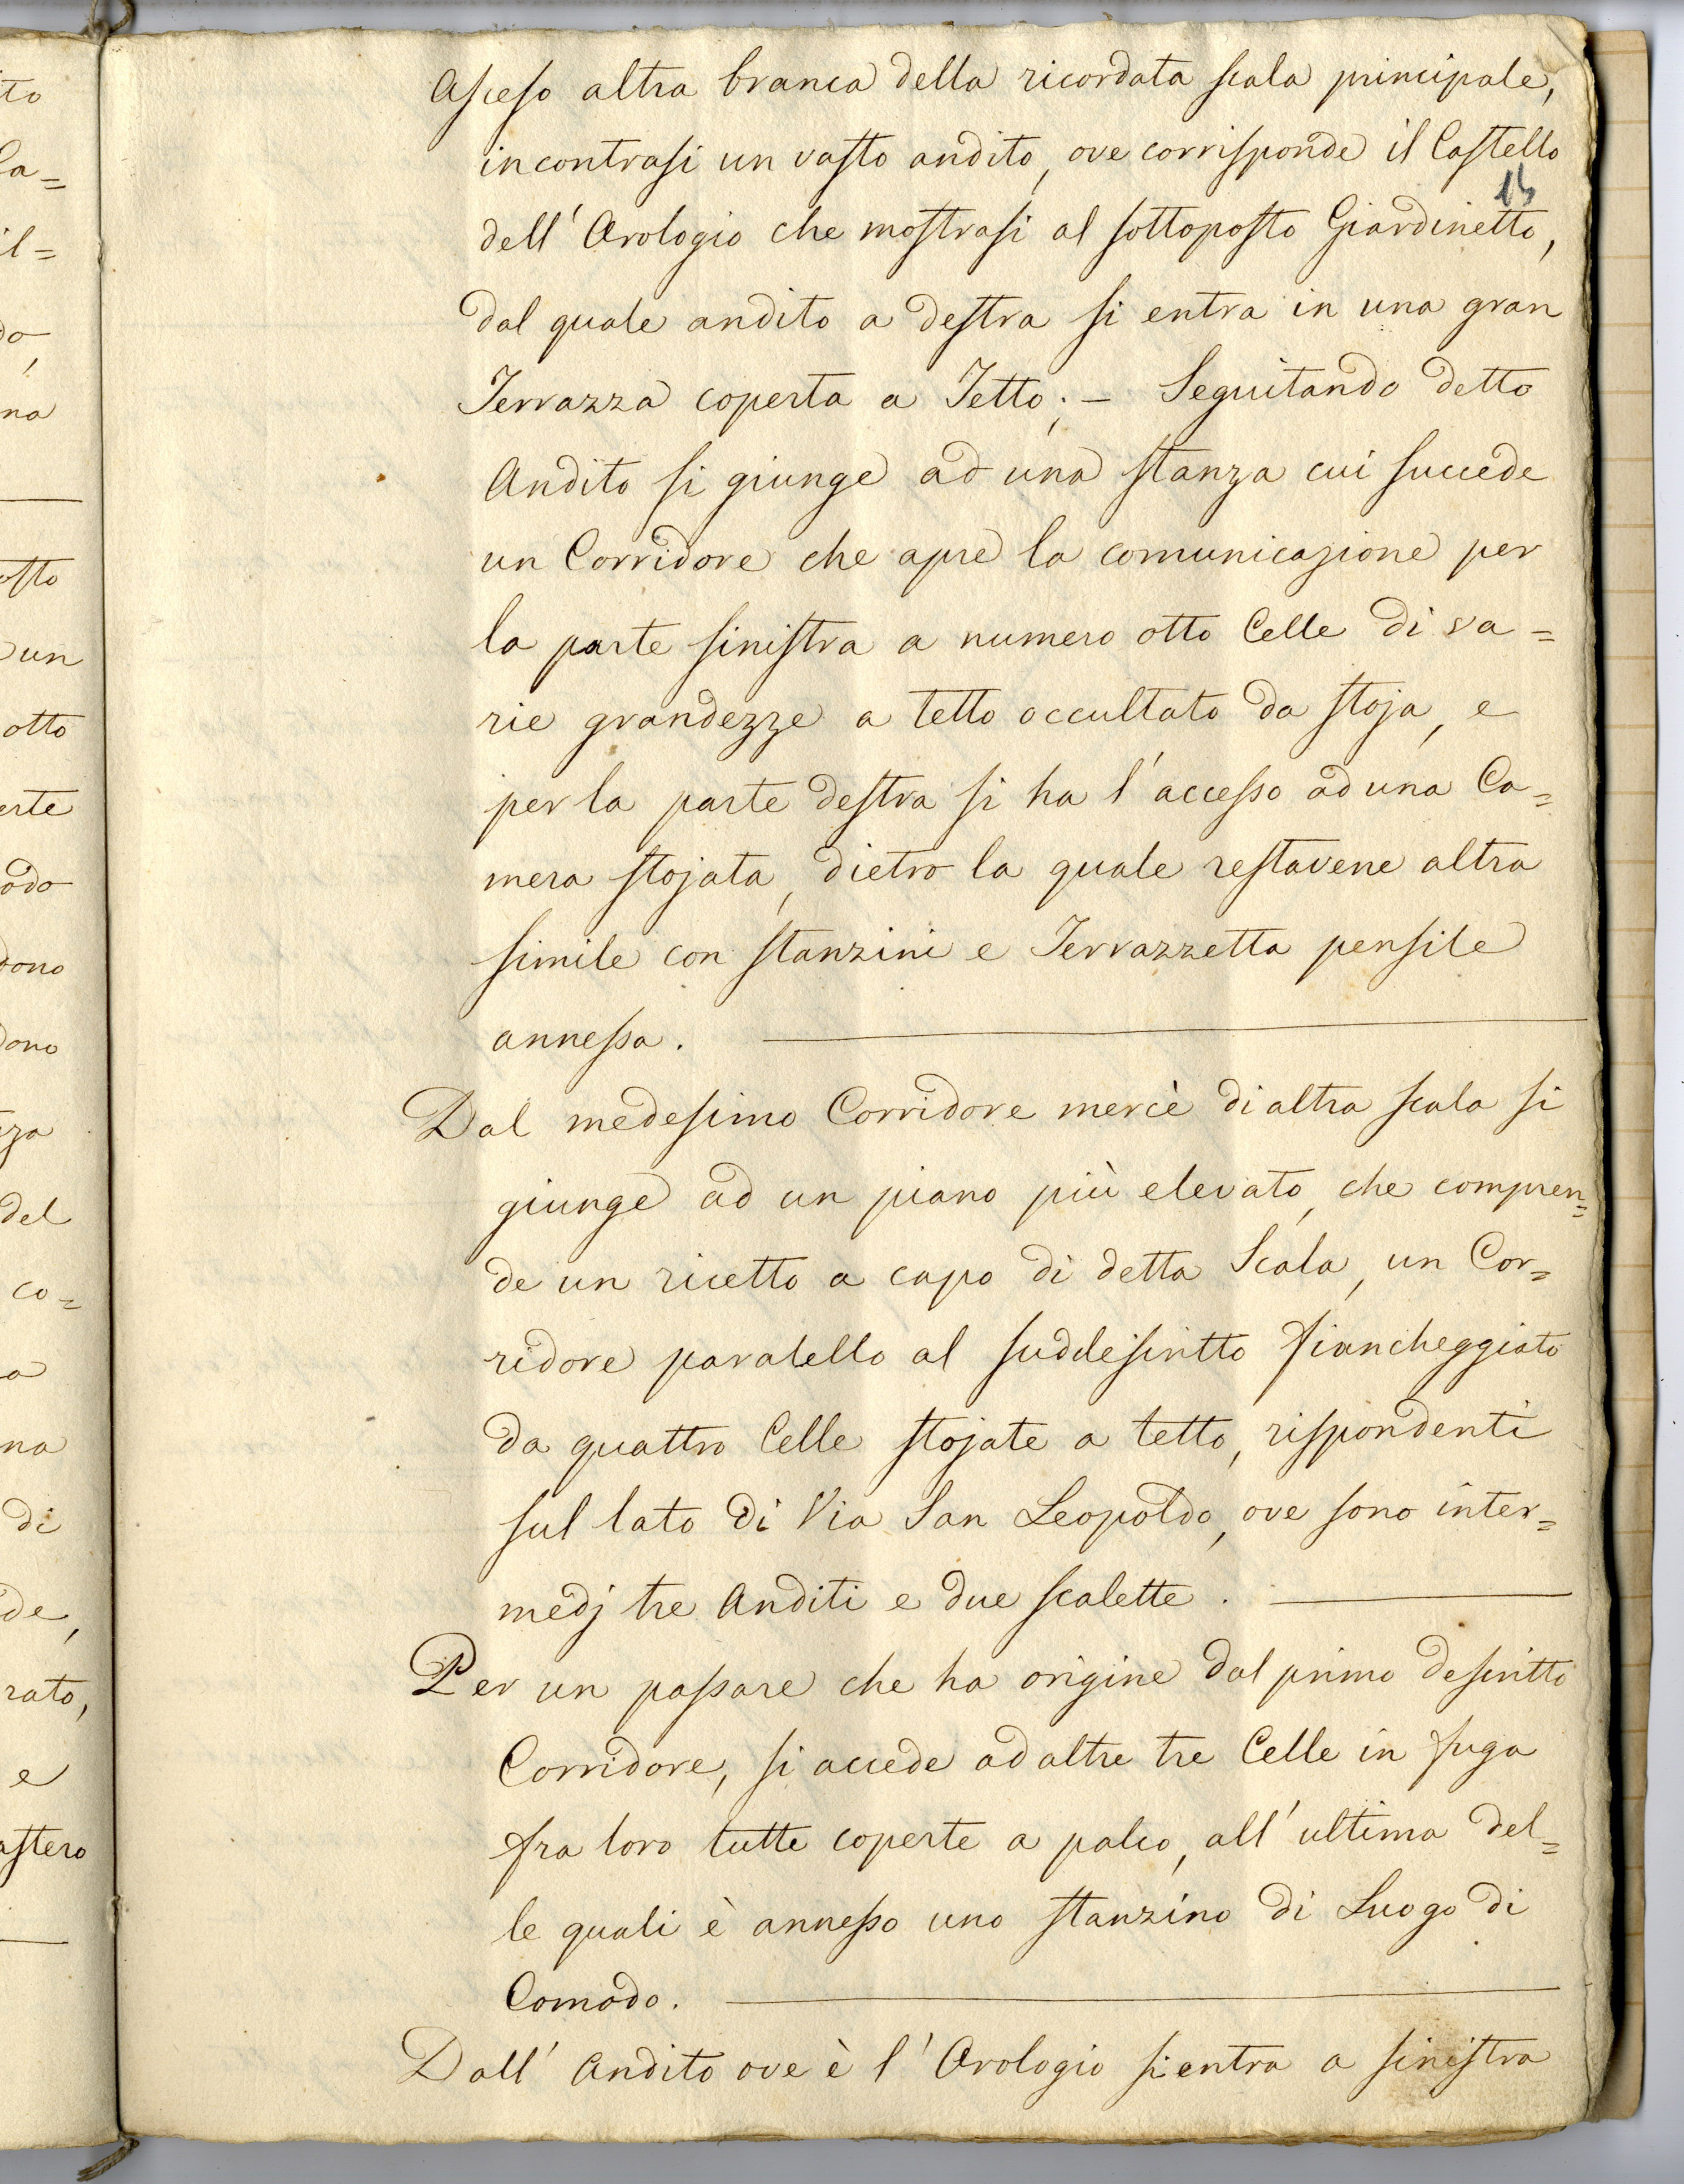 to
Ca=
il=
do,
na
osto
un
otto
erte
odo
dono
dono
za
del
co=
a
na
di
de,
rato,
e
astero
Asceso altra branca della ricordata scala principale,
incontrasi un vasto andito, ove corrisponde il Castello
15
dell'Orologio che mostrasi al sottoposto Giardinetto,
dal quale andito a destra si entra in una gran
Terrazza coperta a Tetto; — Seguitando detto
Andito si giunge ad una stanza cui succede
un Corridore che apre la comunicazione per
la parte sinistra a numero otto Celle di va=
rie grandezze a tetto occultato da stoja, e
per la parte destra si ha l'accesso ad una Ca=
mera stojata, dietro la quale restavene altra
simile con stanzini e Terrazzetta pensile
annessa.
Dal medesimo Corridore mercè di altra scala si
giunge ad un piano più elevato, che compren=
de un ricetto a capo di detta Scala, un Cor=
ridore paralello al suddescritto fiancheggiato
da quattro Celle stojate a tetto, rispondenti
sul lato di Via San Leopoldo, ove sono inter=
medj tre Anditi e due scalette.
Per un passare che ha origine dal primo descritto
Corridore, si accede ad altre tre Celle in fuga
fra loro tutte coperte a palco, all'ultima del=
le quali è annesso uno stanzino di Luogo di
Comodo.
Dall'Andito ove è l'Orologio si entra a sinistra